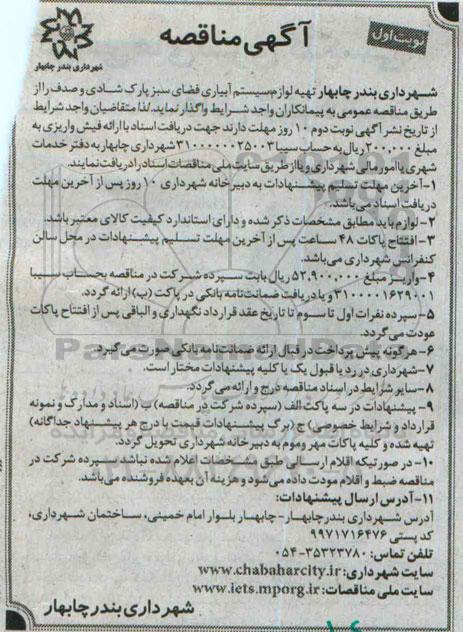 نوبت اول
آگهی مناقصه
شهرداری بندر چابهار
شهرداری بندر چابهار تهیه لوازم، سیستم آبیاری فضای سبز پارک شادی و صدف را از
طریق مناقصه عمومی به پیمانکاران واجد شرایط واگذار نماید. لذا متقاضیان واجد شرایط
از تاریخ نشر آگهی نوبت دوم ۱۰ روز مهلت دارند جهت دریافت اسناد با ارائه فیش واریزی به
مبلغ ۲۰۰,۰۰۰ ریال به حساب سیبا ۳۱۰۰۰۰۰۰۲۵۰۰۳ شهرداری چابهار به دفتر خدمات
شهری یا امور مالی شهرداری و یا از طریق سایت ملی مناقصات اسناد را دریافت نمایند.
۱- آخرین مهلت تسلیم پیشنهادات به دبیرخانه شهرداری ۱۰ روز پس از آخرین مهلت
دریافت اسناد می‌باشد.
۲- لوازم باید مطابق مشخصات ذکر شده و دارای استاندارد کیفیت کالای معتبر باشد.
۳- افتتاح پاکات ۴۸ ساعت پس از آخرین مهلت تسلیم پیشنهادات در محل سالن
کنفرانس شهرداری می‌باشد.
۴- واریز مبلغ ۵۲,۹۰۰,۰۰۰ ریال بابت سپرده شرکت در مناقصه بحساب سیبا
۳۱۰۰۰۰۱۶۲۹۰۰۱ و یا دریافت ضمانت‌نامه بانکی در پاکت (ب) ارائه گردد.
۵- سپرده نفرات اول تا سوم تا تاریخ عقد قرارداد نگهداری و الباقی پس از افتتاح پاکات
عودت می‌گردد.
۶- هرگونه پیش پرداخت در قبال ارائه ضمانت‌نامه بانکی صورت می‌گیرد.
۷- شهرداری در رد یا قبول یک یا کلیه پیشنهادات مختار است.
۸- سایر شرایط در اسناد مناقصه درج و ارائه می‌گردد.
۹- پیشنهادات در سه پاکت الف (سپرده شرکت در مناقصه) ب (اسناد و مدارک و نمونه
قرارداد و شرایط خصوصی) ج (برگ پیشنهادات قیمت با درج هر پیشنهاد جداگانه)
تهیه شده و کلیه پاکات مهر و موم به دبیرخانه شهرداری تحویل گردد.
۱۰- در صورتیکه اقلام ارسالی طبق مشخصات اعلام شده نباشد، سپرده شرکت در
مناقصه ضبط و اقلام مودت داده می‌شود و هزینه آن بعهده فروشنده می‌باشد.
۱۱- آدرس ارسال پیشنهادات:
آدرس شهرداری بندر چابهار- چابهار بلوار امام خمینی، ساختمان شهرداری،
کد پستی ۹۹۷۱۷۱۶۴۷۶
تلفن تماس: ۳۵۳۲۳۷۸۰-۰۵۴
سایت شهرداری: www.chabaharcity.ir
سایت ملی مناقصات: www.iets.mporg.ir
شهرداری بندر چابهار